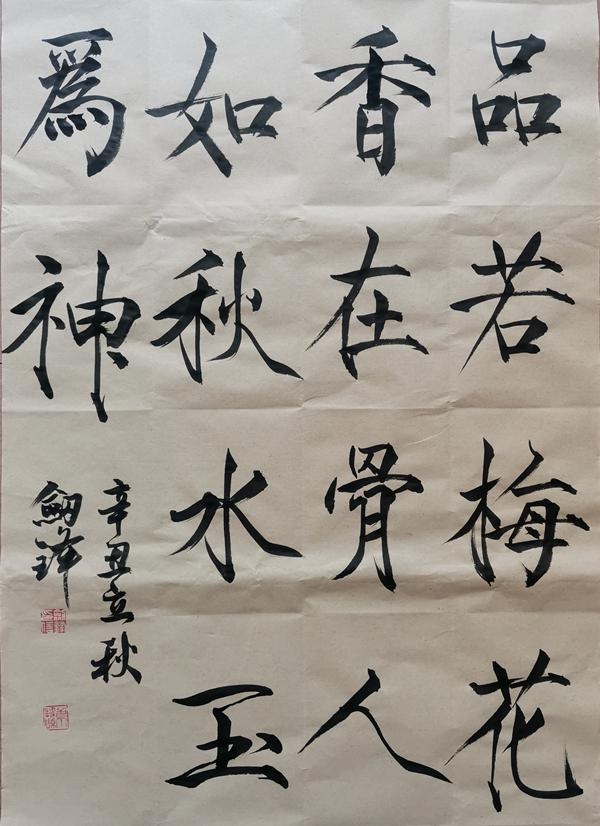 品若梅花
香在骨人
如秋水玉
爲神
辛丑立秋
劒鋒